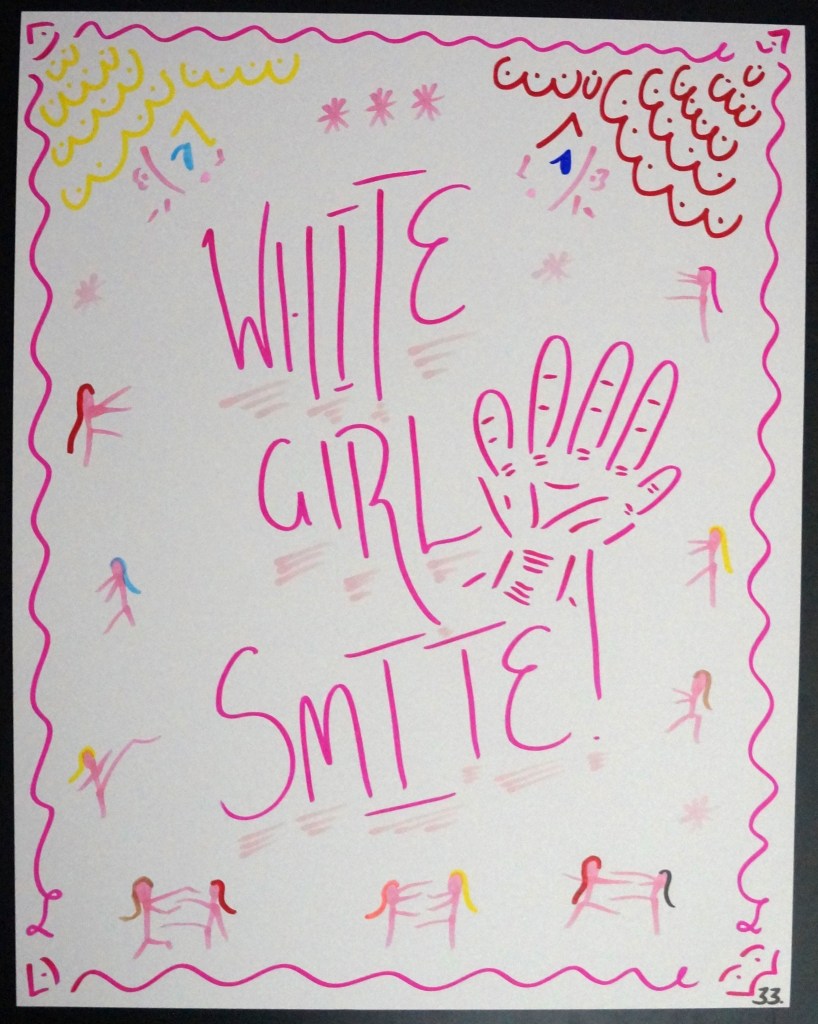 WHITE
GIRL
SMITE!
33.